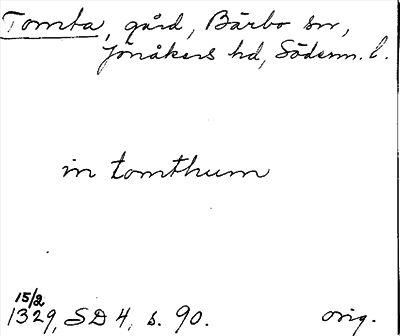 Tomta, gård, Bärbo sn,
Jönåkers hd, Söderm. l.
in tomthum
15/2
1329, SD 4, s. 90. orig.